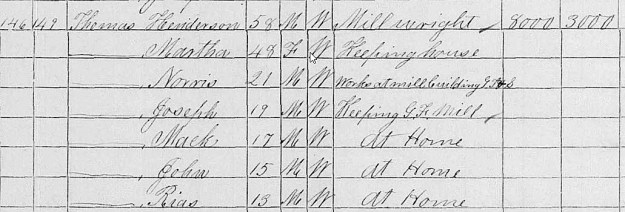 146 149 Thomas Henderson 58 M W Millwright 8000 3000
Martha 48 F W Keeping house
Norris 21 M W Works at mill building G. F & S
Joseph 19 M W Keeping G. F. Mill
Mack 17 M W At Home
John 15 M W At Home
Rias 13 M W At Home